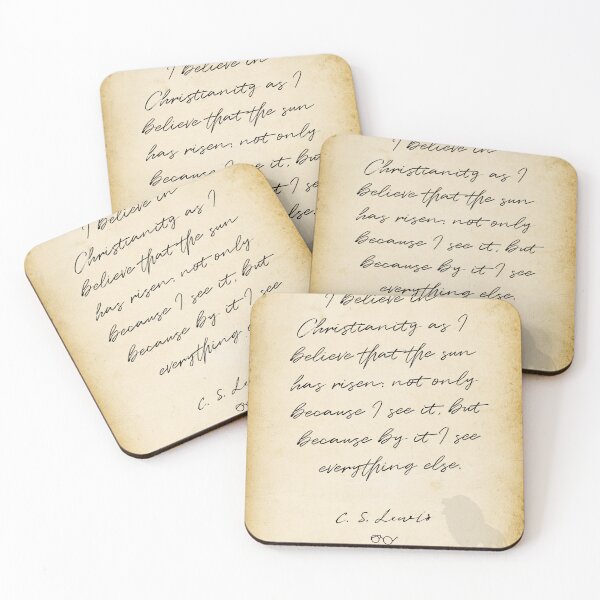 I believe in
Christianity as I
believe that the sun
has risen: not only
because
I see it, but
I see
else.
I believe in
Christianity as I
believe that the sun
has risen: not only
because I see it, but
because by it I see
everything else.
I believe in
Christianity as I
believe that the sun
has risen: not only
because I see it, but
because by it I see
everything
C. S.
I believe in
Christianity as I
believe that the sun
has risen: not only
because I see it, but
because by it I see
everything else.
C. S. Lewis